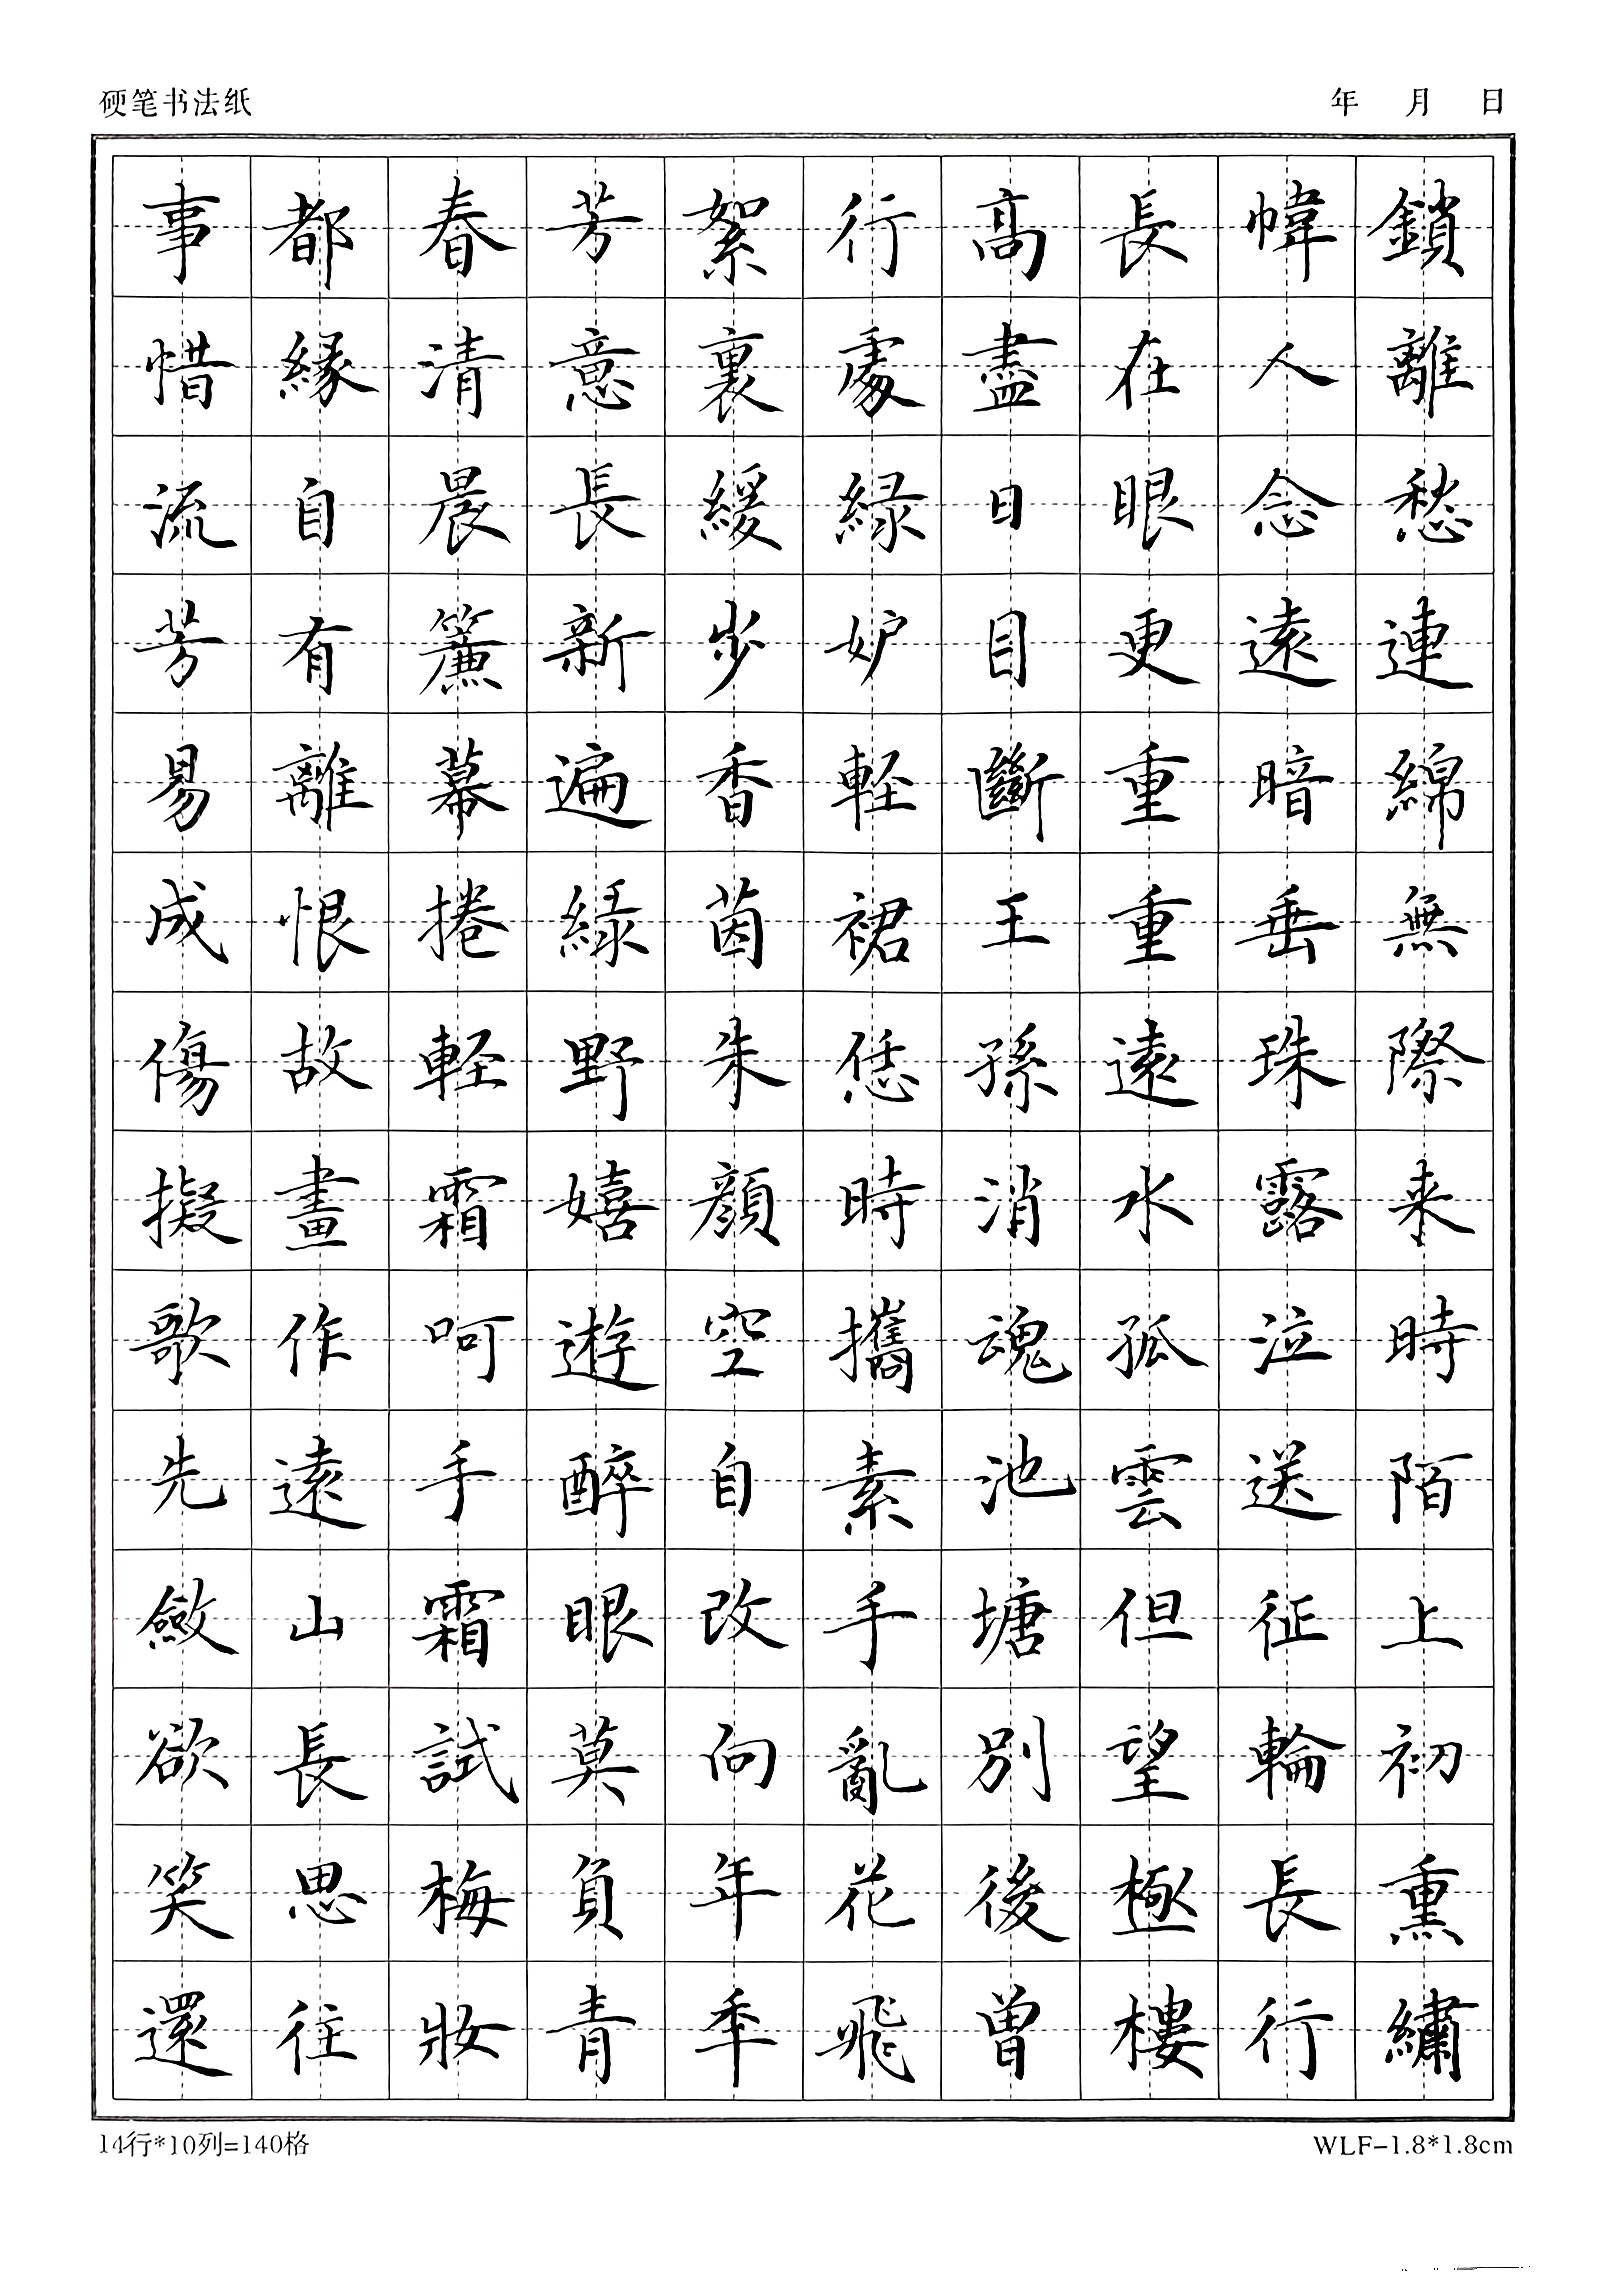 硬笔书法纸
年 月 日
鎖離愁連綿無際来時陌上初熏繡
幃人念遠暗垂珠露泣送征輪長行
長在眼更重重遠水孤雲但望極樓
高盡日目斷王孫消魂池塘別後曾
行處緑妒輕裙恁時攜素手亂花飛
絮裏緩步香茵朱顏空自改向年年
芳意長新遍緑野嬉遊醉眼莫負青
春清晨簾幕捲輕霜呵手霜試梅妝
都緣自有離恨故畫作遠山長思往
事惜流芳易成傷擬歌先斂欲笑還
14行*10列=140格
WLF-1.8*1.8cm